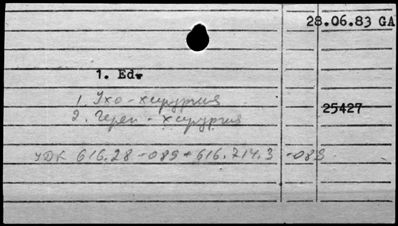 28.06.83 GA
1. Edv
1. Ухо - хирургия
25427
2. Череп - хирургия
УДК 616.28-089+616.714.3-089